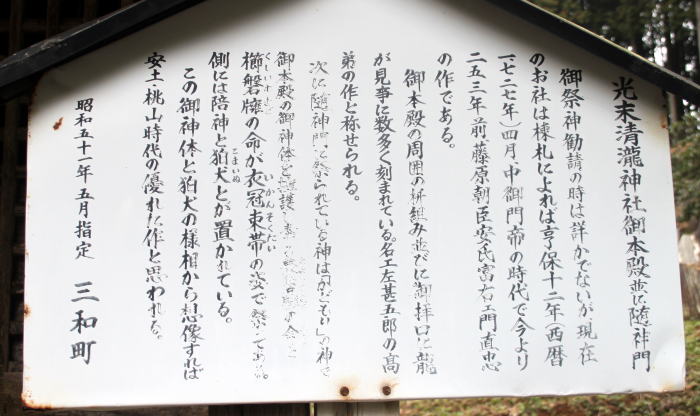 光末清瀧神社御本殿並に随神門
御祭神勧請の時は詳かでないが現在
のお社は棟札によれば享保十二年(西暦
一七二七年)四月中御門帝の時代で今より
二五三年前藤原朝臣安氏富右ェ門直忠
の作である。
御本殿の周囲の枡組み並びに御拝口に龍
が見事に数多く刻まれている。名工左甚五郎の高
弟の作と称せられる。
次に随神門に祭られている神は「かどもり」の神で
御本殿の御神体を
櫛磐牖の命が衣冠束帯の姿で祭ってある。
くしいわまど
いかんそくたい
側には陪神と狛犬とが置かれている。
こまいぬ
この御神体と狛犬の様相から想像すれば
安土桃山時代の優れた作と思われる。
昭和五十一年五月指定 三和町